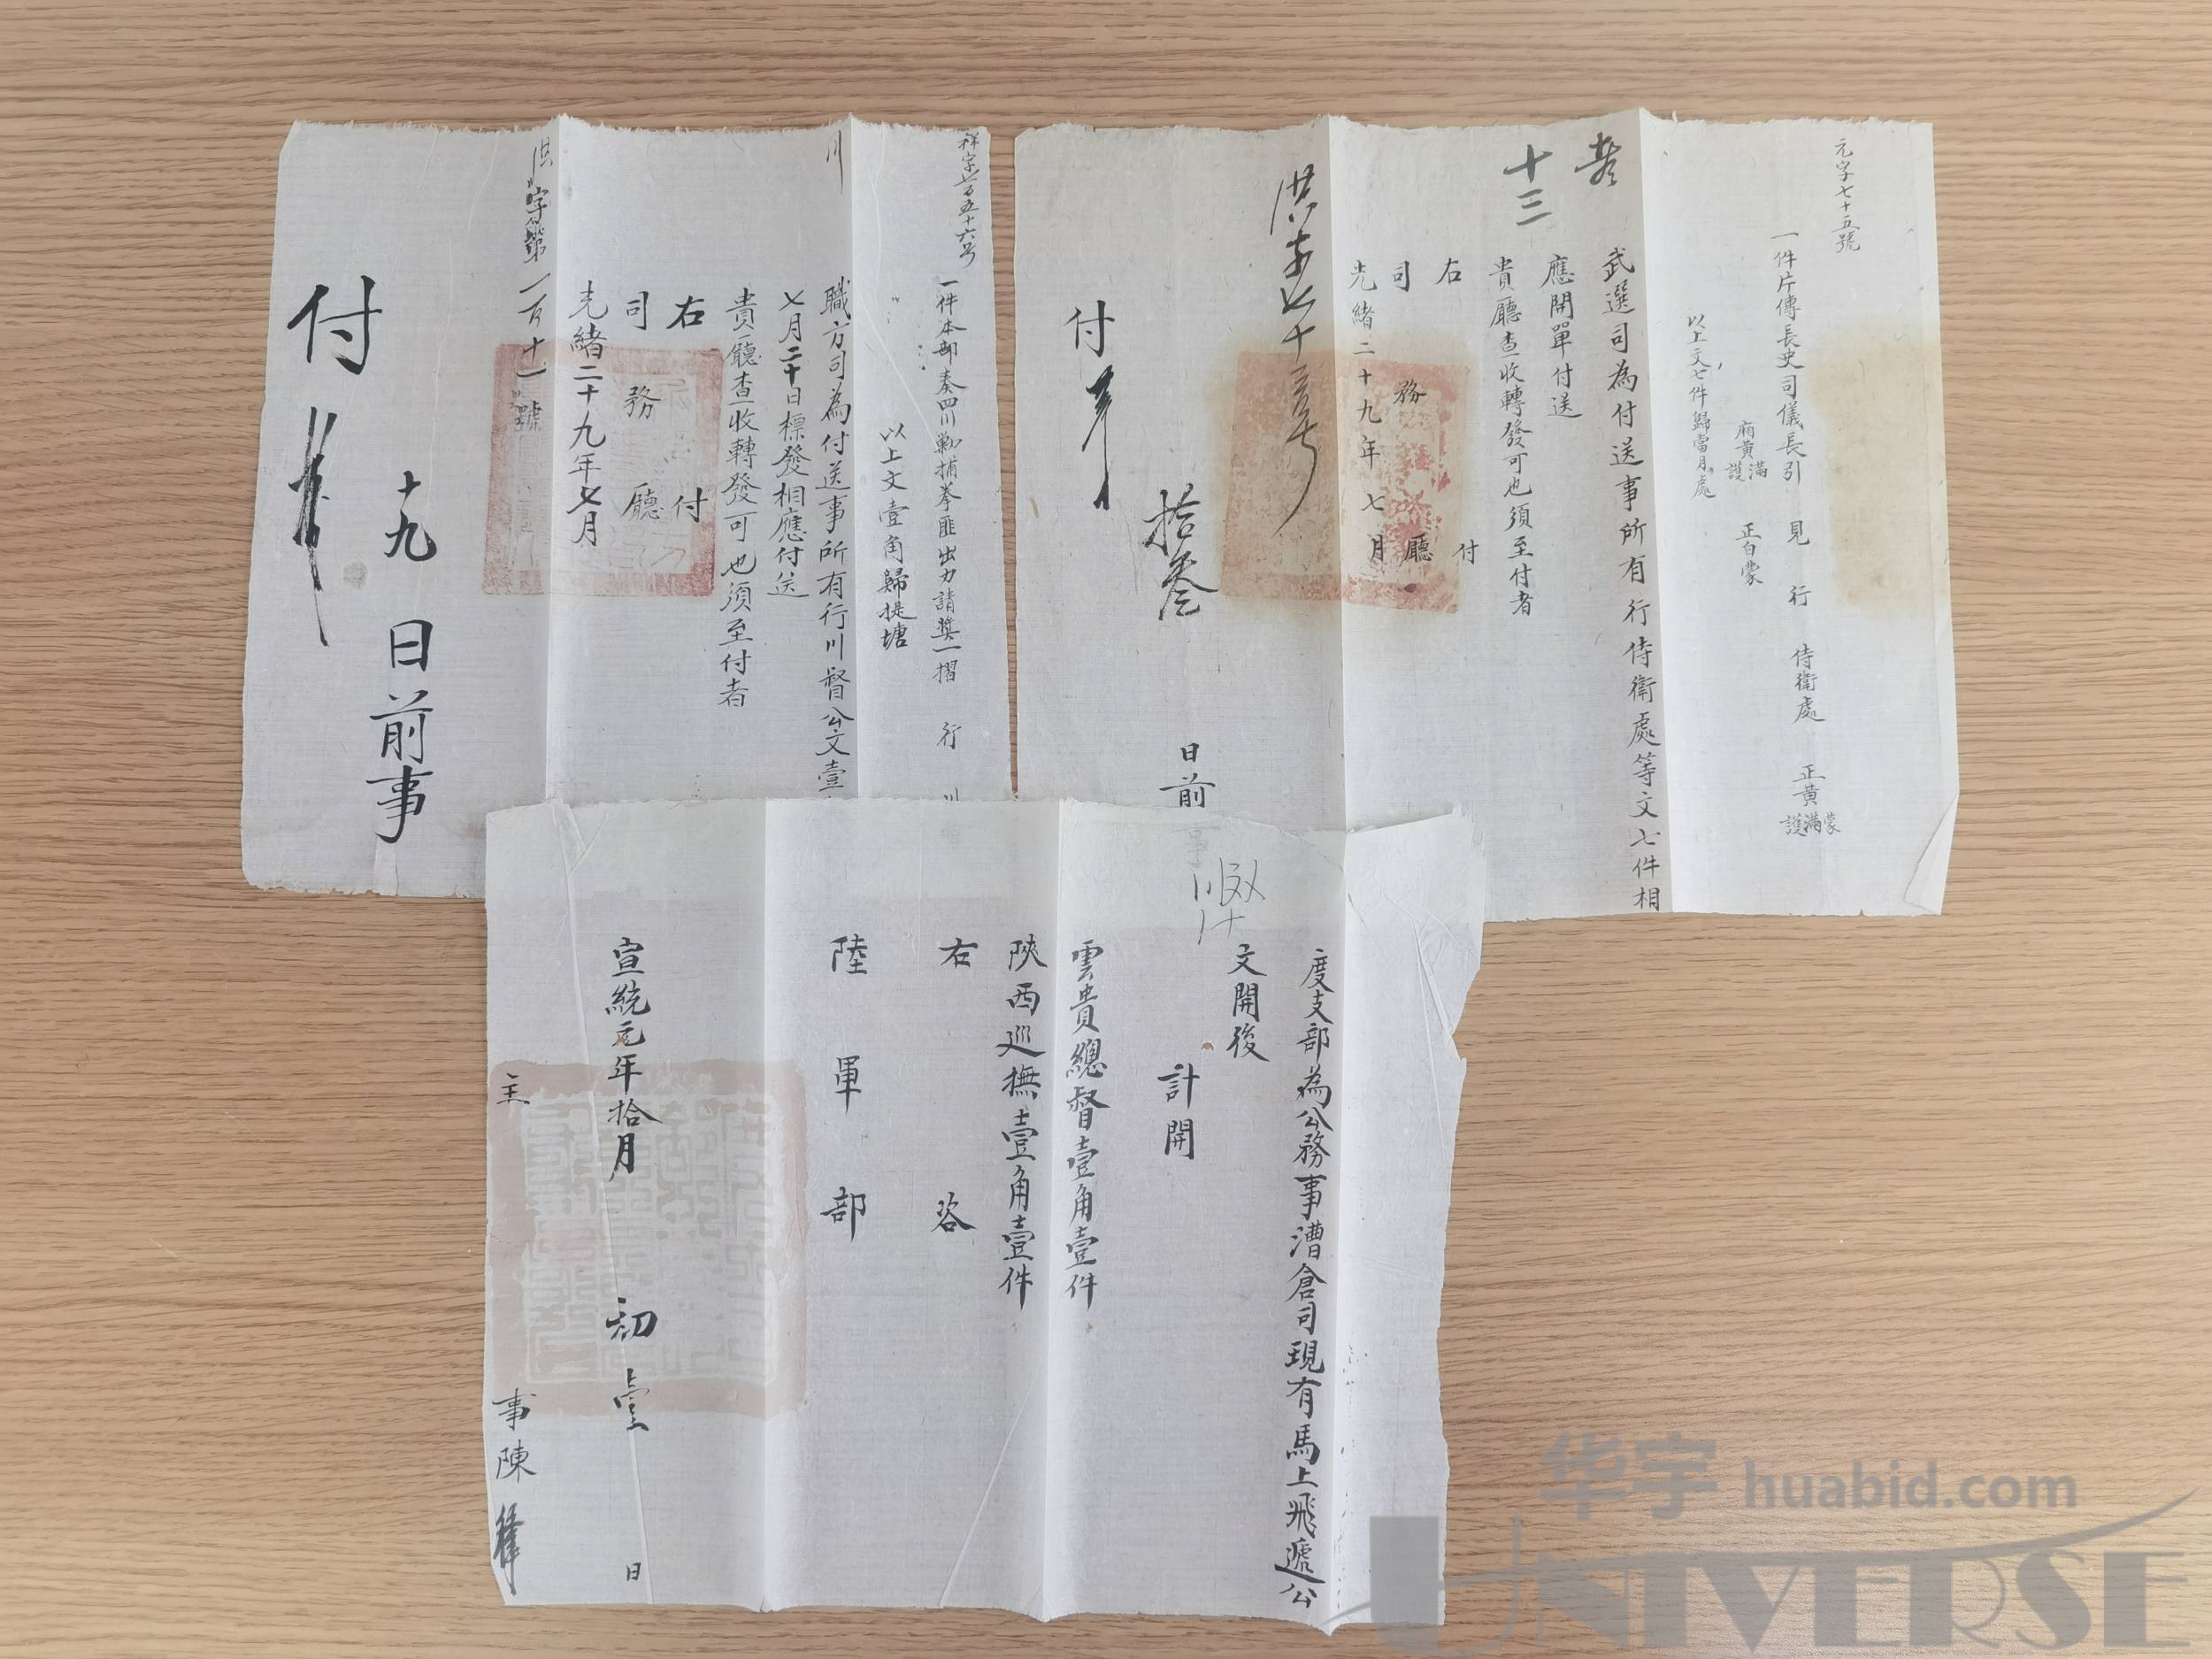 元字七十五號
一件片傳長史司儀長引見行侍衛處正黃蒙滿護
廂黃滿護正白蒙
以上文七件歸當月處
武選司為付送事所有行侍衛處等文七件相
應開單付送
貴廳查收轉發可也須至付者
右付
司務廳
光緒二十九年七月
十三
拾叁日前事
付
一件本部奏四川勦捕拳匪出力請獎一摺行川
以上文壹角歸提塘
職方司為付送事所有行川督公文壹
七月二十日標發相應付送
貴廳查收轉發可也須至付者
右付
司務廳
光緒二十九年七月
洪字第一百十一號
十九日前事
付
度支部為公務事漕倉司現有馬上飛遞公
文開後
計開
雲貴總督壹角壹件
陝西巡撫壹角壹件
右咨
陸軍部
宣統元年拾月初壹日
主事陳
华宇 huabid.com
UNIVERSE